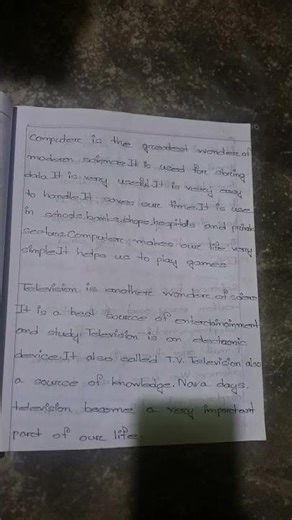 Computer is the greatest wonder of
modern science.It is used for storing
data.It is very useful.It is very easy
to handle.It saves our time.It is use
in schools,banks,shops,hospitals and private
sectors.Computer makes our life very
simple.It helps us to play games
Television is another wonder of science
It is a best source of entertainment
and study.Television is an electronic
device.It also called T.V.Television also
a source of knowledge.Now a days.
television become a very important
part of our life.